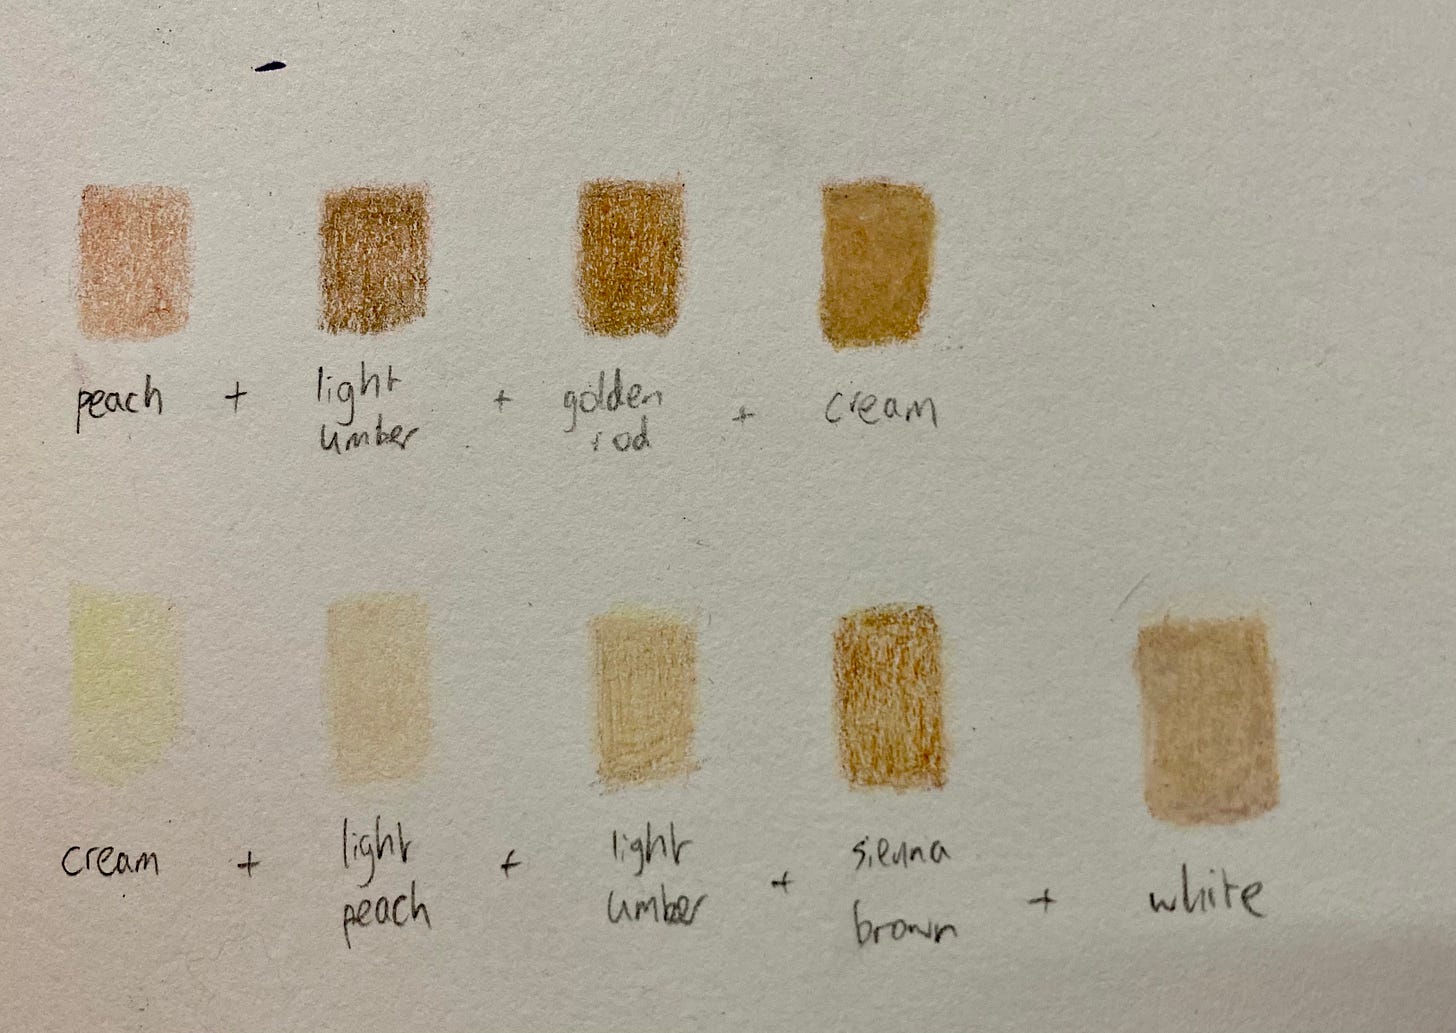 peach + light + golden + cream
umber rod
cream + light + light + sienna + white
peach umber brown